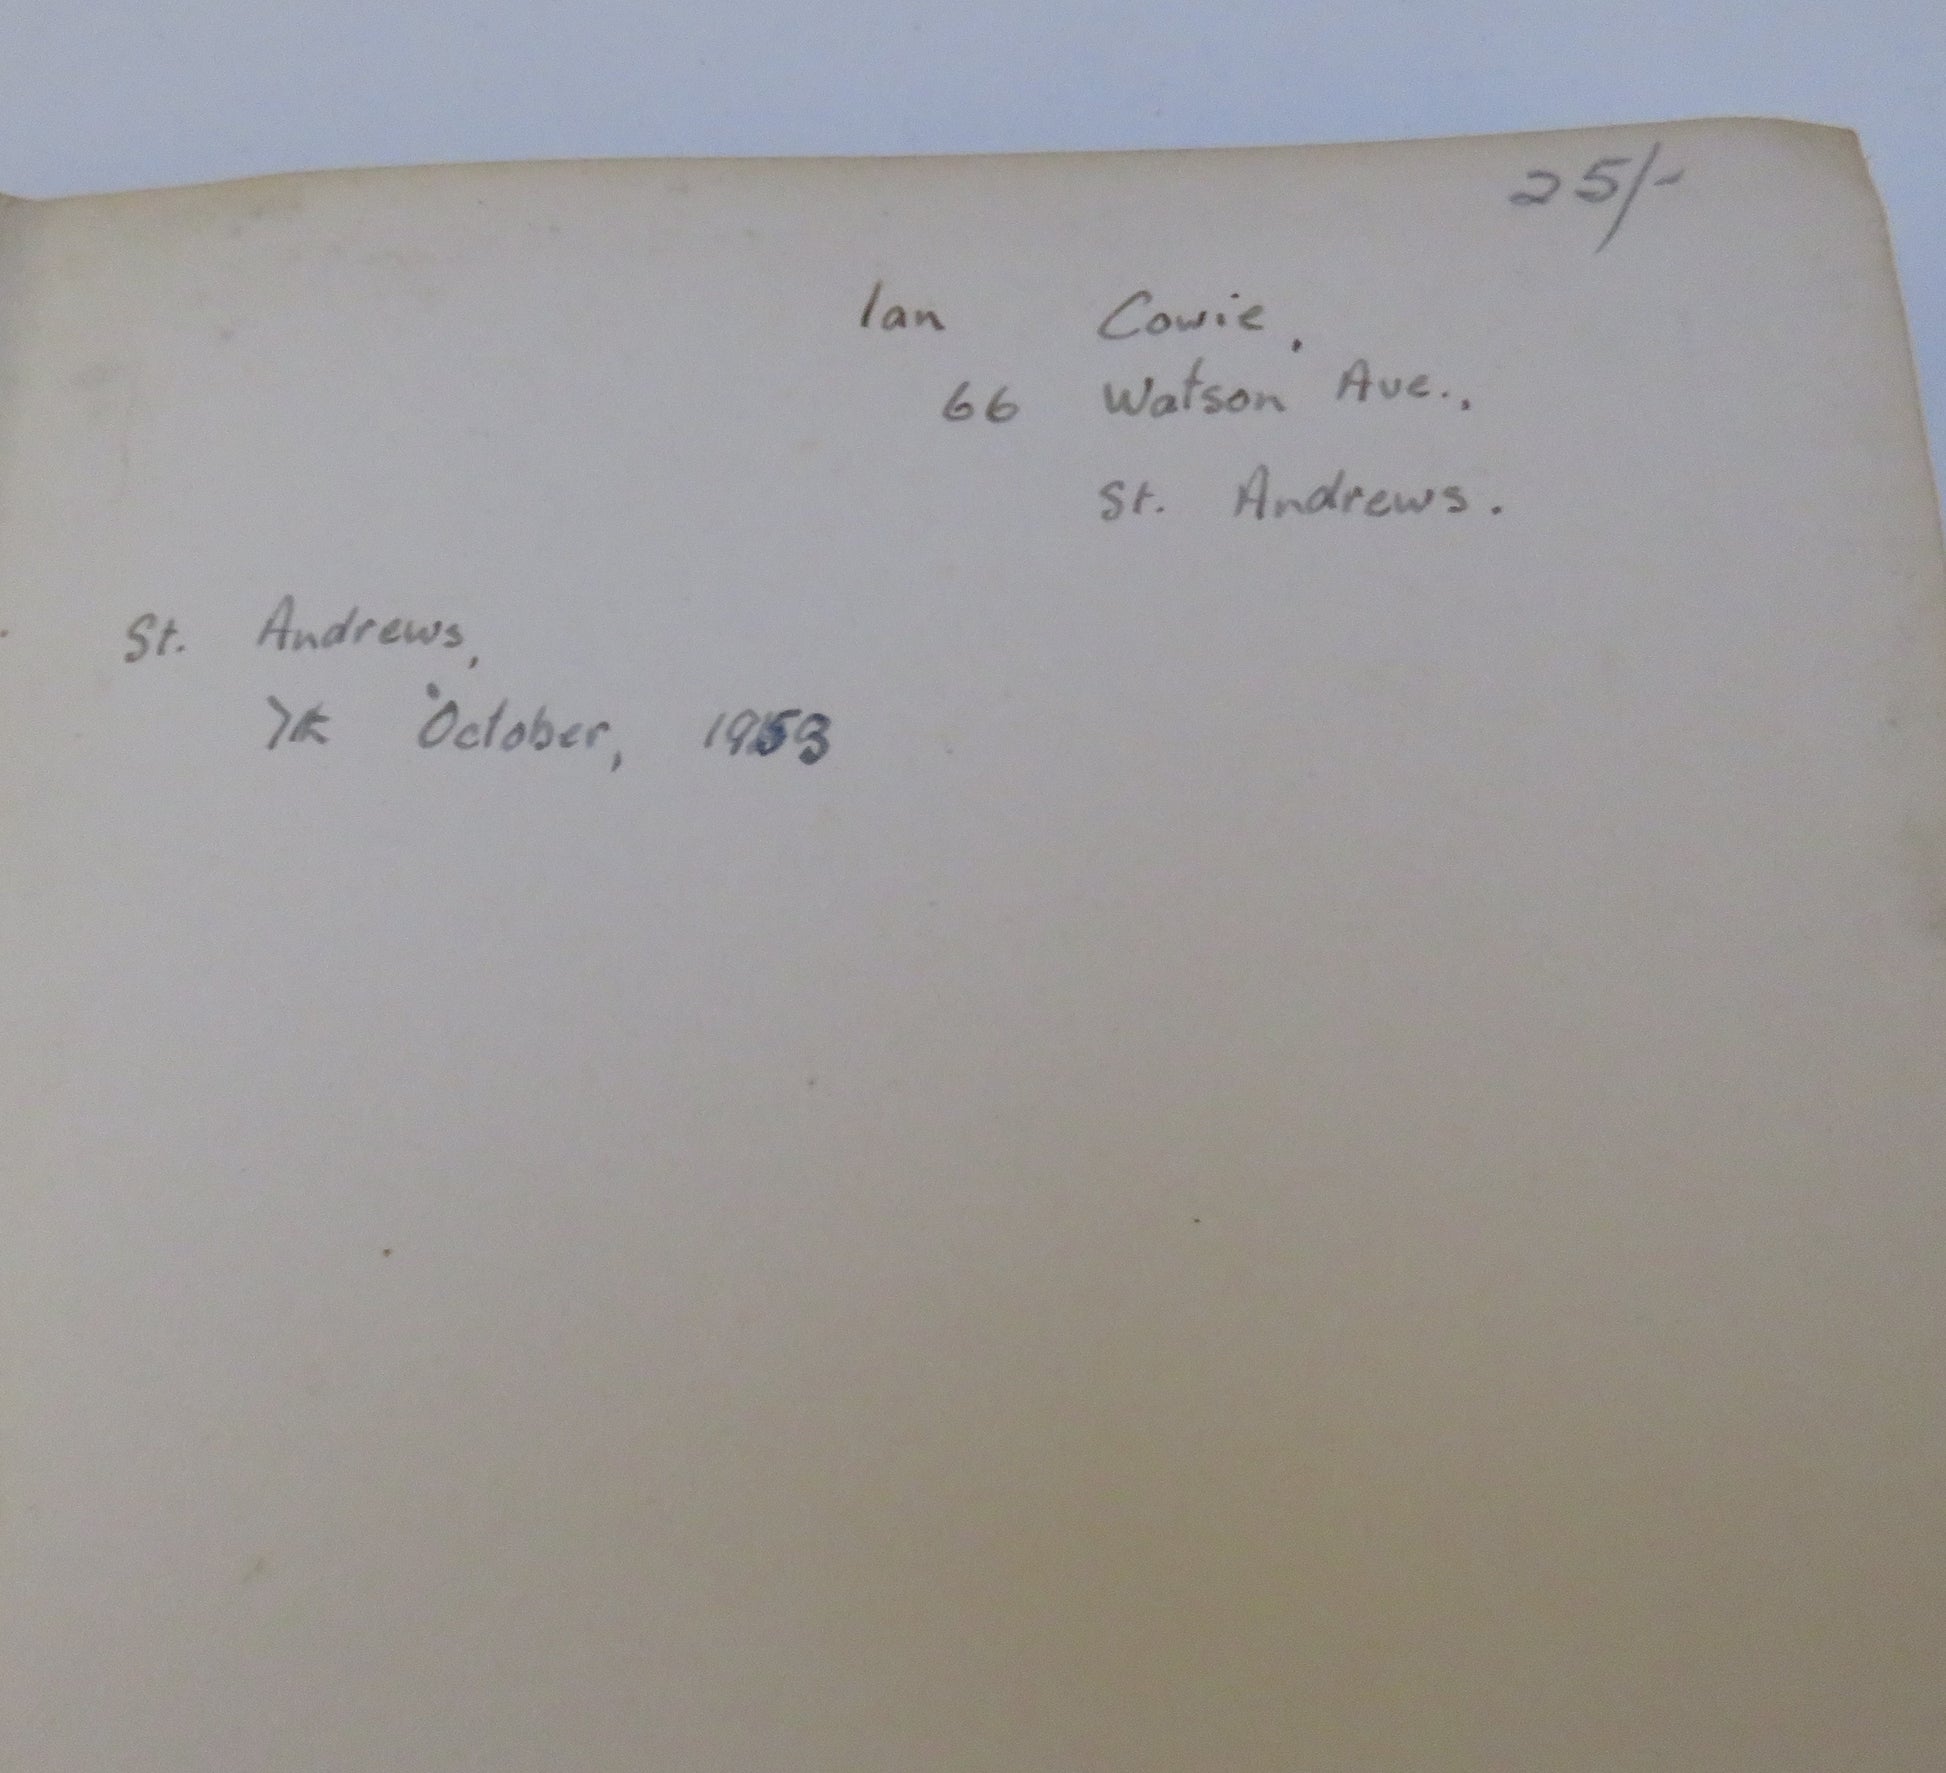 25/-
Ian Cowie,
66 Watson Ave.,
St. Andrews.
St. Andrews,
7th October, 1953